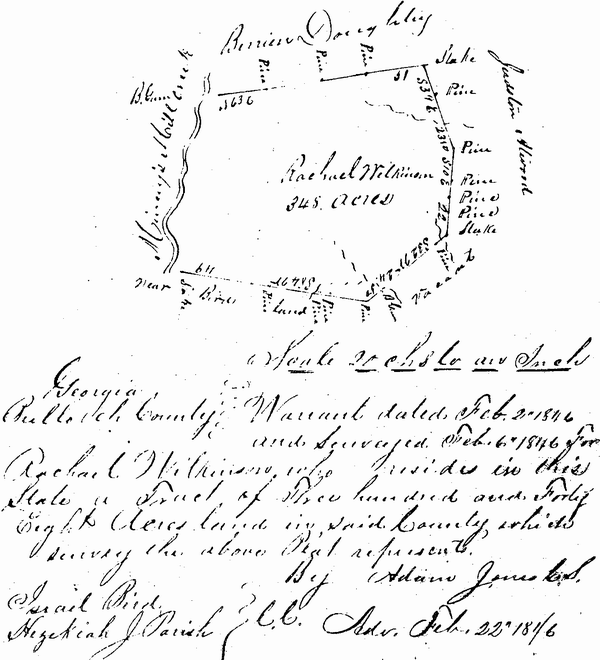 Berrien Doughtey
Pine Pine Pine Stake
B. Gum
Pine
51
Mill Creek
Pine
Rachael Wilkinson
348 Acres
Pine
Pine
Pine
Stake
Pine
Vacant
near
Stake
Pine
land
Pine
Pine
Pine
Scale 20 chs to an Inch
Georgia
Bulloch County Warrant dated Feb. 2d 1846
and Surveyed Feb. 6th 1846 For
Rachael Wilkinson who resides in this
State a Tract of Three hundred and Forty
Eight Acres land in said County which
survey the above Plat represents.
By Adam Jones C.S.
Israil Bird
Hezekiah J Parish } C.C. Adv. Feb. 22d 1846